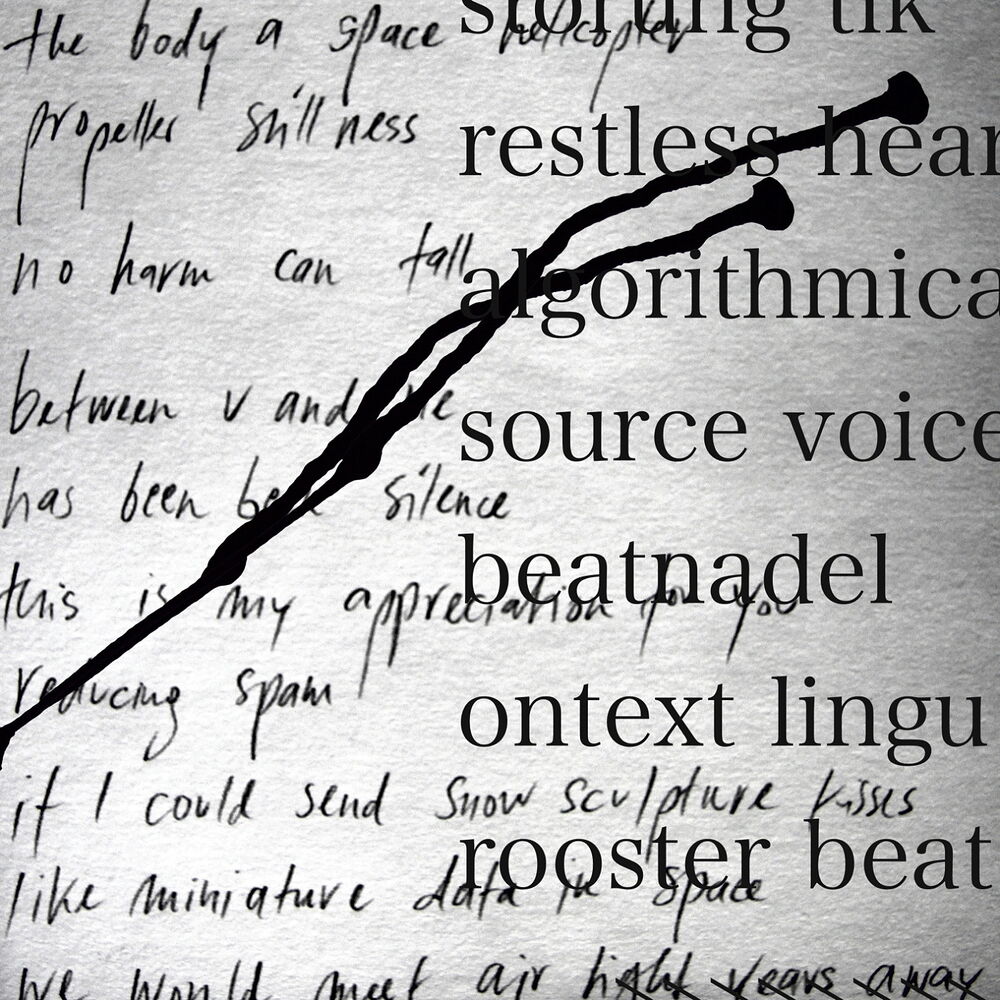 the body a space helicopter
propeller stillness
no harm can fall
between v and me
has been been silence
this is my appreciation for you
reducing spam
if I could send snow sculpture kisses
like miniature data in space
we would meet air tight years away
restless hear
algorithmica
source voice
beatnadel
ontext lingu
rooster beat